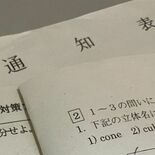 通知表
対策
分せよ。
2 1~3の問いに
1. 下記の立体名に
1) cone 2) cub